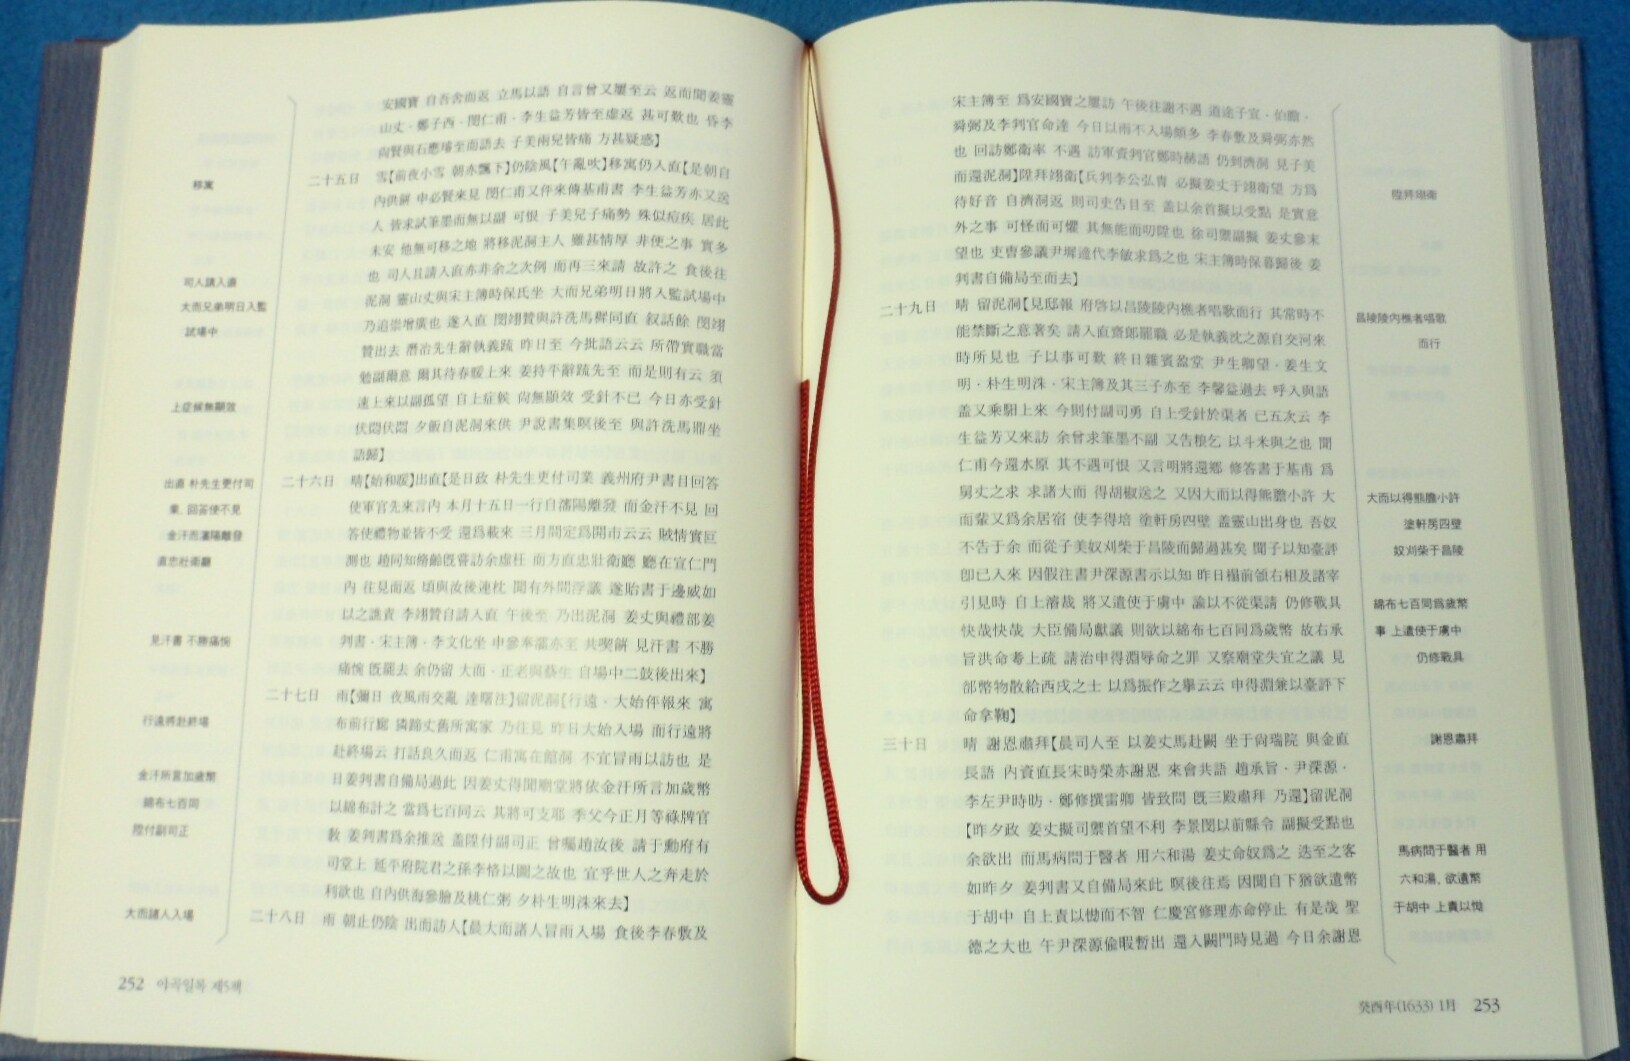 安國寶 自吾舍而返 立馬以語 自言曾又屢至云 返而聞姜靈
山丈·鄭子西·閔仁甫·李生益芳皆至虛返 甚可歎也 昏李
尙賢與石應璿至而語去 子美兩兒皆痛 方甚疑惑】
移寓
二十五日 雪【前夜小雪 朝亦飄下】仍陰風【午亂吹】移寓仍入直【是朝自
內供餠 申必賢來見 閔仁甫又伻來傳基甫書 李生益芳亦又送
人 皆求試筆墨而無以副 可恨 子美兒子痛勢 殊似痘疾 居此
未安 他無可移之地 將移泥洞主人 雖甚情厚 非便之事 實多
司人請入直
也 司人且請入直亦非余之次例 而再三來請 故許之 食後往
大而兄弟明日入監
泥洞 靈山丈與宋主簿時保氏坐 大而兄弟明日將入監試場中
試場中
乃追崇增廣也 遂入直 閔翊贊與許洗馬穉同直 叙話餘 閔翊
贊出去 潛治先生辭執義疏 昨日至 今批語云云 所帶實職當
勉副爾意 爾其待春暖上來 姜持平辭疏先至 而是則有云 須
上症候無顯效
速上來以副孤望 自上症候 尙無顯效 受針不已 今日亦受針
伏悶伏悶 夕飯自泥洞來供 尹說書集暝後至 與許洗馬鼎坐
語歸】
出直 朴先生更付司
二十六日 晴【始和暖】出直【是日政 朴先生更付司業 義州府尹書目回答
業, 回答使不見
使軍官先來言內 本月十五日一行自瀋陽離發 而金汗不見 回
金汗而瀋陽離發
答使禮物並皆不受 還爲載來 三月間定爲開市云云 賊情實叵
直忠壯衛廳
測也 趙同知緖飴旣奪訪余虛枉 而方直忠壯衛廳 廳在宣仁門
內 往見而返 頃與汝後連枕 聞有外間浮議 遂貽書于邊威如
以之譙責 李翊贊自請入直 午後至 乃出泥洞 姜丈與禮部姜
見汗書 不勝痛惋
判書·宋主簿·李文化坐 申參奉濡亦至 共喫餠 見汗書 不勝
痛惋 旣罷去 余仍留 大而·正老與蔡生 自場中二鼓後出來】
二十七日 雨【彌日 夜風雨交亂 達曙注】留泥洞【行遠·大始伻報來 寓
行遠將赴終場
布前行廊 隣歸丈舊所寓家 乃往見 昨日大始入場 而行遠將
赴終場云 打話良久而返 仁甫寓在館洞 不宜冒雨以訪也 是
金汗所言加歲幣
日姜判書自備局過此 因姜丈得聞廟堂將依金汗所言加歲幣
綿布七百同
以綿布計之 當爲七百同云 其將可支耶 季父今正月等祿牌官
陞付副司正
敎 姜判書爲余推送 蓋陞付副司正 曾囑趙汝後 請于勳府有
司堂上 延平府院君之孫李恪以圖之故也 宜乎世人之奔走於
利欲也 自內供海參膾及桃仁粥 夕朴生明洙來去】
大而諸人入場
二十八日 雨 朝止仍陰 出而訪人【晨大而諸人冒雨入場 食後李春敷及
252 야곡일록 제5책
宋主簿至 爲安國寶之屢訪 午後往謝不遇 道途子宣·伯膽·
舜弼及李判官命達 今日以雨不入場頗多 李春敷及舜弼亦然
也 回訪鄭衛率 不遇 訪軍資判官鄭時赫語 仍到濟洞 見子美
而還泥洞】陞拜翊衛【兵判李公弘冑 必擬姜丈于翊衛望 方爲
陞拜翊衛
待好音 自濟洞返 則司吏告目至 蓋以余首擬以受點 是實意
外之事 可怪而可懼 其無能而叨陞也 徐司禦副擬 姜丈參末
望也 吏曹參議尹墀適代李敏求爲之也 宋主簿時保暮歸後 姜
判書自備局至而去】
二十九日 晴 留泥洞【見邸報 府啓以昌陵陵內樵者唱歌而行 其當時不
昌陵陵內樵者唱歌
能禁斷之意著矣 請入直齋郞罷職 必是執義沈之源自交河來
而行
時所見也 子以事可歎 終日雜賓盈堂 尹生聊望·姜生文
明·朴生明洙·宋主簿及其三子亦至 李馨益過去 呼入與語
蓋又乘馹上來 今則付副司勇 自上受針於渠者 已五次云 李
生益芳又來訪 余曾求筆墨不副 又告糧乞 以斗米與之也 聞
仁甫今還水原 其不遇可恨 又言明將還鄕 修答書于基甫 爲
舅丈之求 求諸大而 得胡椒送之 又因大而以得熊膽小許 大
大而以得熊膽小許
而輩又爲余居宿 使李得培 塗軒房四壁 蓋靈山出身也 吾奴
塗軒房四壁
不告于余 而從子美奴刈柴于昌陵而歸過甚矣 聞子以知臺評
奴刈柴于昌陵
卽已入來 因假注書尹深源書示以知 昨日榻前領右相及諸宰
引見時 自上濬哉 將又遣使于虜中 諭以不從渠請 仍修戰具
綿布七百同爲歲幣
快哉快哉 大臣備局獻議 則欲以綿布七百同爲歲幣 故右承
事 上遣使于虜中
旨洪命耈上疏 請治申得淵辱命之罪 又察廟堂失宜之議 見
仍修戰具
部幣物散給西戍之士 以爲振作之擧云云 申得淵兼以臺評下
命拿鞠】
三十日 晴 謝恩肅拜【晨司人至 以姜丈馬赴闕 坐于尙瑞院 與金直
謝恩肅拜
長語 內資直長宋時榮亦謝恩 來會共語 趙承旨·尹深源·
李左尹時昉·鄭修撰雷卿 皆致問 旣三殿肅拜 乃還】留泥洞
【昨夕政 姜丈擬司禦首望不利 李景閔以前縣令 副擬受點也
余欲出 而馬病問于醫者 用六和湯 姜丈命奴爲之 迭至之客
馬病問于醫者 用
如昨夕 姜判書又自備局來此 暝後往焉 因聞自下猶欲遺幣
六和湯, 欲遺幣
于胡中 自上責以怮而不智 仁慶宮修理亦命停止 有是哉 聖
于胡中 上責以怮
德之大也 午尹深源偸暇暫出 還入闕門時見過 今日余謝恩
癸酉年(1633) 1月 253